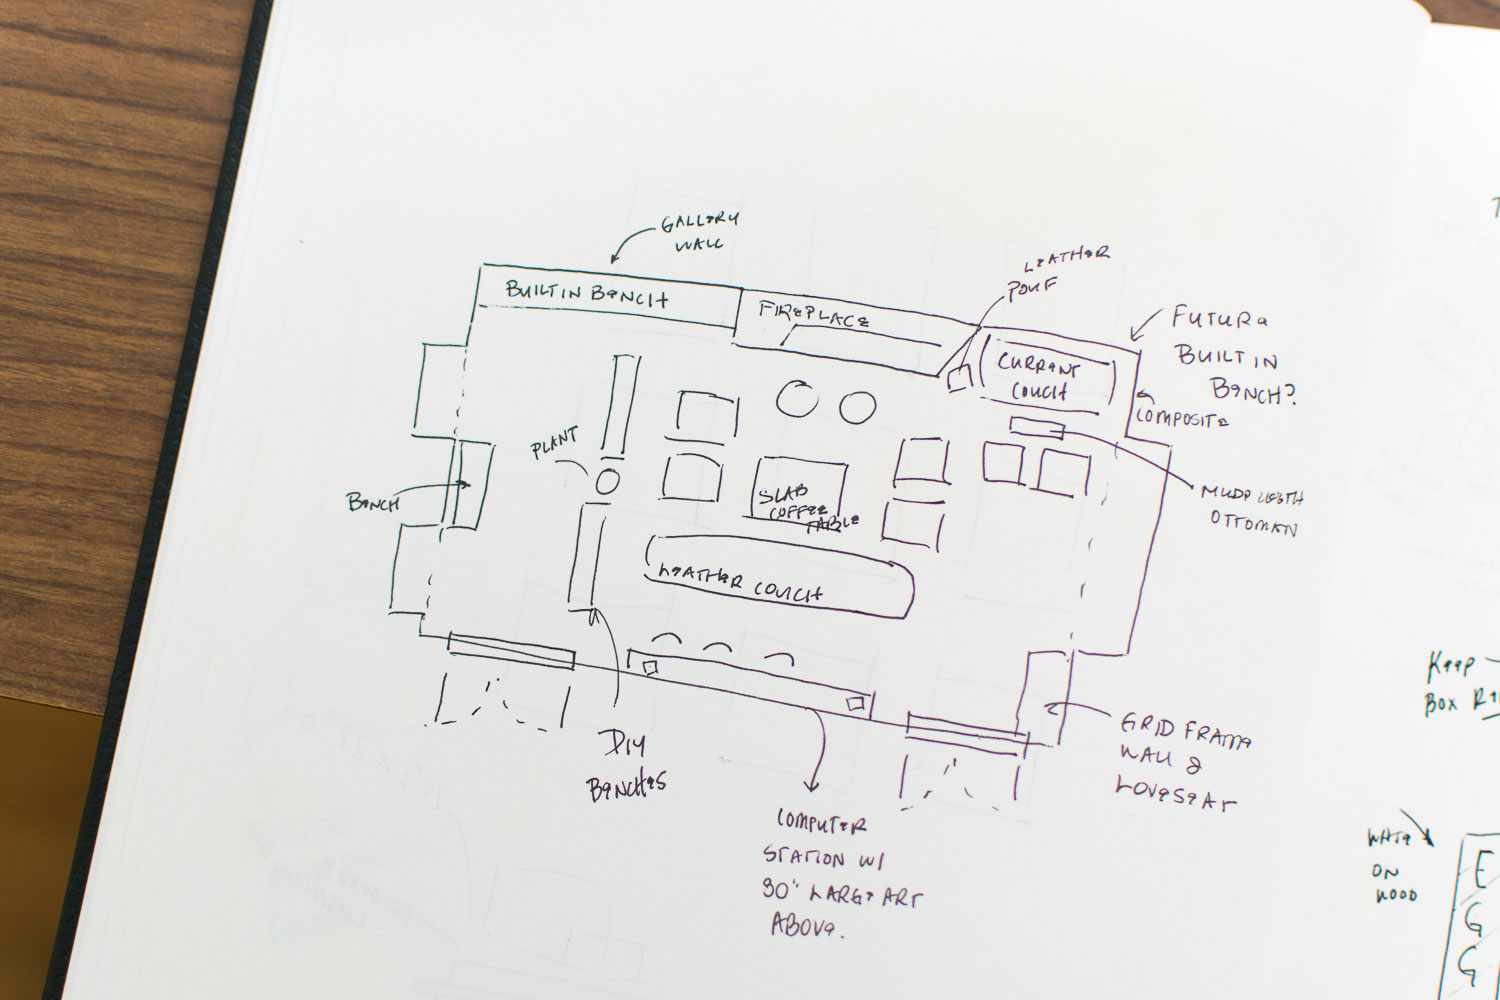 GALLERY
WALL
BUILT IN BENCH
FIREPLACE
LEATHER
POUF
FUTURE
BUILT IN
BENCH?
CURRENT
COUCH
COMPOSITE
PLANT
BENCH
SLAB
COFFEE
TABLE
MUDCLOTH
OTTOMAN
LEATHER COUCH
DIY
BENCHES
GRID FRAME
WALL &
LOVESEAT
COMPUTER
STATION W/
30" LARGE ART
ABOVE.
KEEP
BOX
WHITE
ON
WOOD
E
G
G